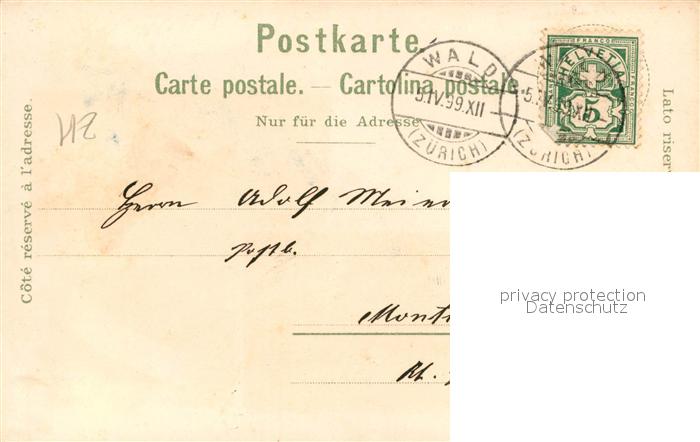 Postkarte.
Carte postale. — Cartolina postale.
Nur für die Adresse
Côté réservé à l'adresse.
Lato riser
HZ
WALD
5.IV.99.XII
(ZÜRICH)
WALD
5.IV.99.XII
(ZÜRICH)
FRANCO
HELVETIA
5
Herrn Adolf Meier
Postb.
Mont
Kt.
privacy protection
Datenschutz